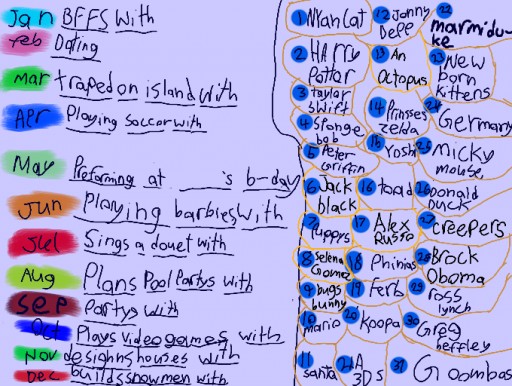 Jan BFFS with
feb Dating
Mar traped on island with
Apr Playing soccar with
May Preforming at ______'s b-day
Jun Playing barbies with
Jul Sings a douet with
Aug Plans Pool Partys with
Sep Partys with
Oct Plays videogames with
Nov designhs houses with
Dec builds snowmen with
1 NYan Cat
2 HArry Pottar
3 taylar swift
4 Sponge bob
5 Peter Griffin
6 Jack black
7 Puppys
8 Selena Gomez
9 bugs bunny
10 mario
11 santa
12 Jonny Depp
13 An Octopus
14 Prinses zelda
15 Yoshi
16 toad
17 Alex Russo
18 Phinias
19 Ferb
20 Koopa
21 A 3DS
22 marmidu-ke
23 New born kittens
24 Germany
25 Micky mouse
26 Donald Duck
27 creepers
28 Brock Oboma
29 ross lynch
30 Greg heffley
31 Goombas